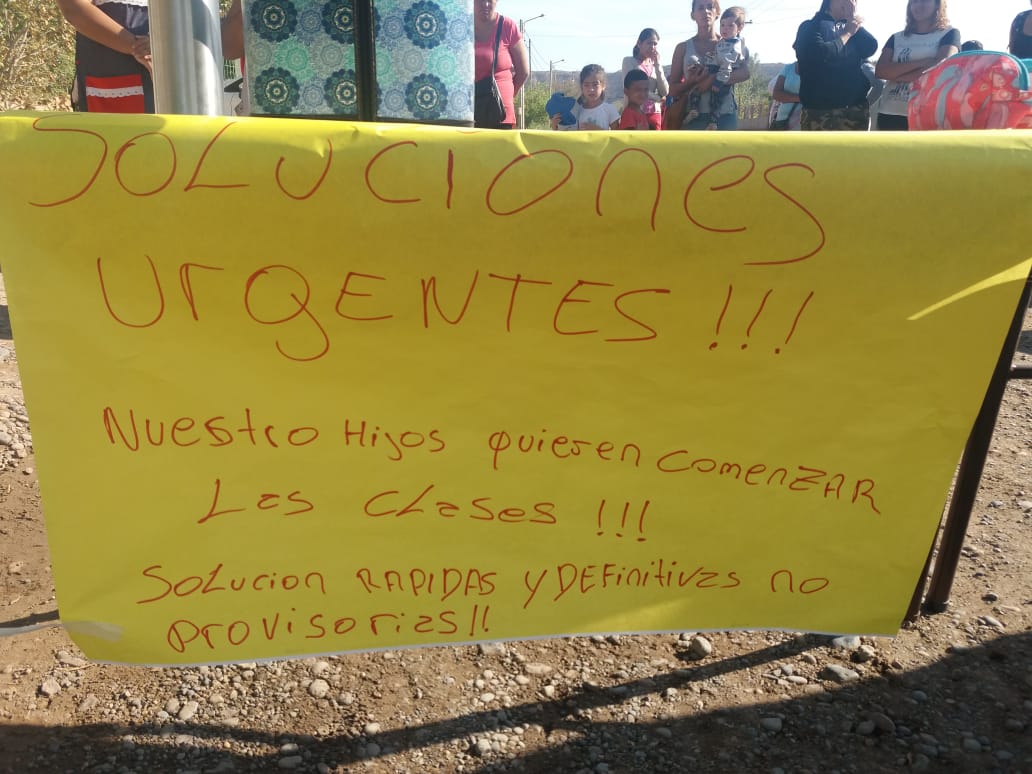 SOLUCiOneS
UrgENTES!!!
Nuestro Hijos quieren comenzAR
Las clases!!!
Solucion RAPIDAS Y DEFinitivas no
provisorias!!